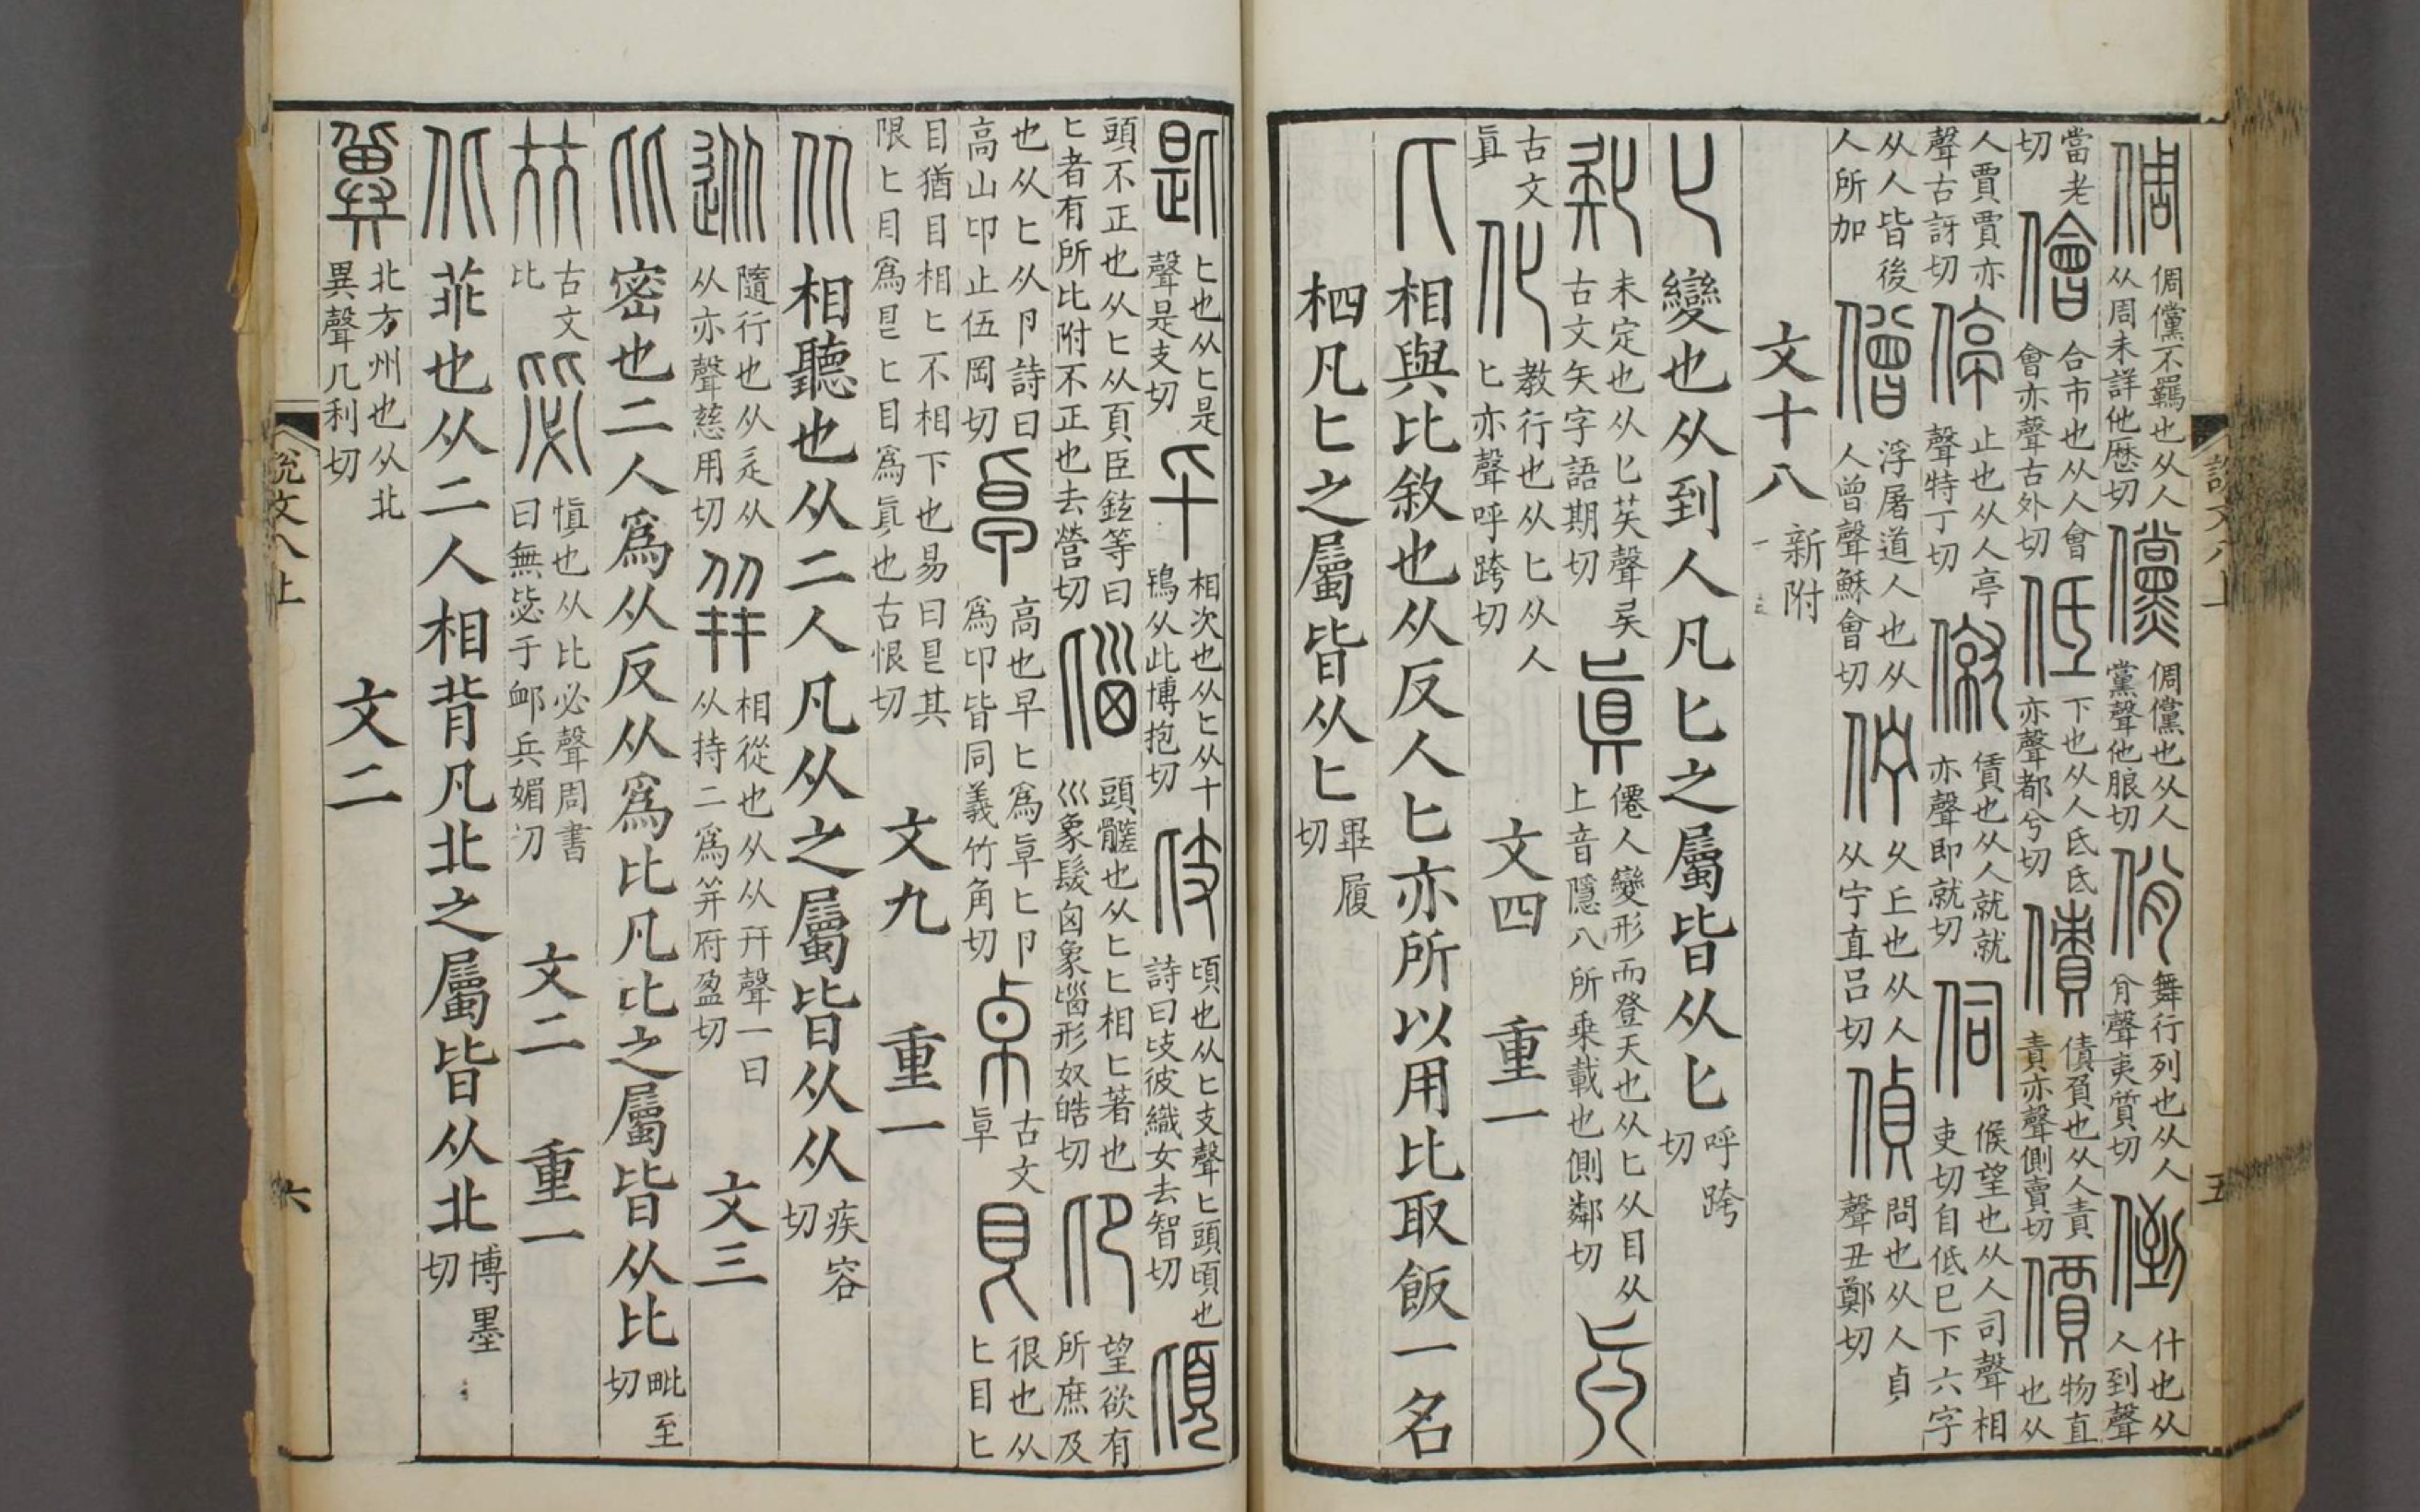 倜 倜儻不羈也从人从周未詳他歷切 儻 倜儻也从人黨聲他朖切 佾 舞行列也从人𦙝聲夷質切 倒 什也从人到聲
當老切 儈 合市也从人會會亦聲古外切 低 下也从人氐氐亦聲都兮切 債 債負也从人責責亦聲側賣切 價 物直也从
人賈賈亦聲古訝切 停 止也从人亭聲特丁切 僦 賃也从人就就亦聲即就切 伺 候望也从人司聲相吏切自低已下六字
从人皆後人所加 僧 浮屠道人也从人曾聲穌會切 佇 久立也从人从宁直呂切 偵 問也从人貞聲丑鄭切
文十八 新附
匕 變也从到人凡匕之屬皆从匕 呼跨切
𠤕 未定也从匕𠤕聲𠤕古文矢字語期切 眞 僊人變形而登天也从匕从目从乚音隱八所乗載也側鄰切
古文眞 化 教行也从匕从人匕亦聲呼跨切 文四 重一
匕 相與比敘也从反人匕亦所以用比取飯一名
柶凡匕之屬皆从匕 畢履切
說文八上 五
匙 匕也从匕是聲是支切 𠤏 相次也从匕从十鴇从此博抱切 𠤖 頃也从匕支聲匕頭頃也詩曰𠤖彼織女去智切 頃
頭不正也从匕从頁臣鉉等曰匕者有所比附不正也去營切 匘 頭髓也从匕匕相匕著也巛象髮囟象匘形奴皓切 卬 望欲有所庶及
也从匕从卪詩曰高山卬止伍岡切 卓 高也早匕爲卓匕卪爲卬皆同義竹角切 古文卓 艮 很也从匕目匕
目猶目相匕不相下也易曰艮其限匕目爲艮匕目爲眞也古恨切 文九 重一
从 相聽也从二人凡从之屬皆从从 疾容切
從 隨行也从辵从从从亦聲慈用切 幷 相從也从从幵聲一曰从持二爲幷府盈切 文三
比 密也二人爲从反从爲比凡比之屬皆从比 毗至切
古文比 毖 愼也从比必聲周書曰無毖于卹兵媚切 文二 重一
北 菲也从二人相背凡北之屬皆从北 博墨切
冀 北方州也从北異聲几利切 文二
說文八上 六